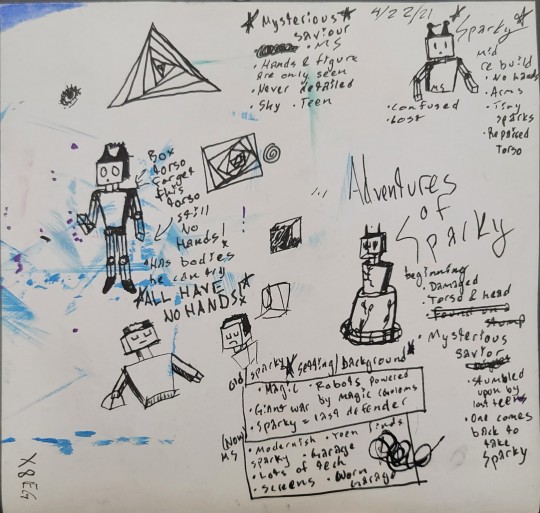 *Mysterious*
saviour
• MS
• Hands & figure
are only seen
• Never detailed
• Shy • Teen
4/22/21
*Sparky*
mid
rebuild
• No hands
• Arms
• Tiny
sparks
• Repaired
Torso
MS
• confused
• Lost
Box
torso
Forget
this
torso
Still
No
Hands!
*Has bodies
*ALL HAVE
NO HANDS!*
...Adventures
of
Sparky
beginning
• Damaged
• Torso & head
• Found on
stump
• Mysterious
savior
• stumbled
upon by
lost teens
• One comes
back to
take
Sparky
Sparky *Setting/Background*
old
• Magic • Robots powered
• Giant war by magic
• Sparky = last defender
(Now)
MS
• Modernish • Teen finds
Sparky • Garage
• Lots of tech
• Screens • Worn
Garage
X8EG